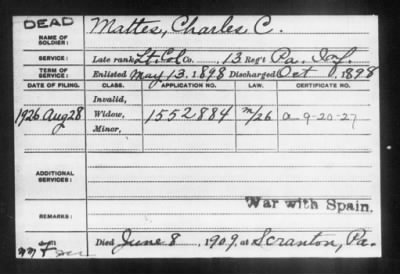 DEAD
NAME OF SOLDIER: Mattes, Charles C.
SERVICE: Late rank Lt. Col Co. 13 Reg't Pa. Inf.
TERM OF SERVICE: Enlisted May 13, 1898 Discharged Oct 1898
DATE OF FILING. CLASS. APPLICATION NO. LAW. CERTIFICATE NO.
Invalid,
1926 Aug 28 Widow, 1552884 m/26 a 9-20-27
Minor,
ADDITIONAL SERVICES:
War with Spain.
REMARKS:
Died June 8, 1909, at Scranton, Pa.